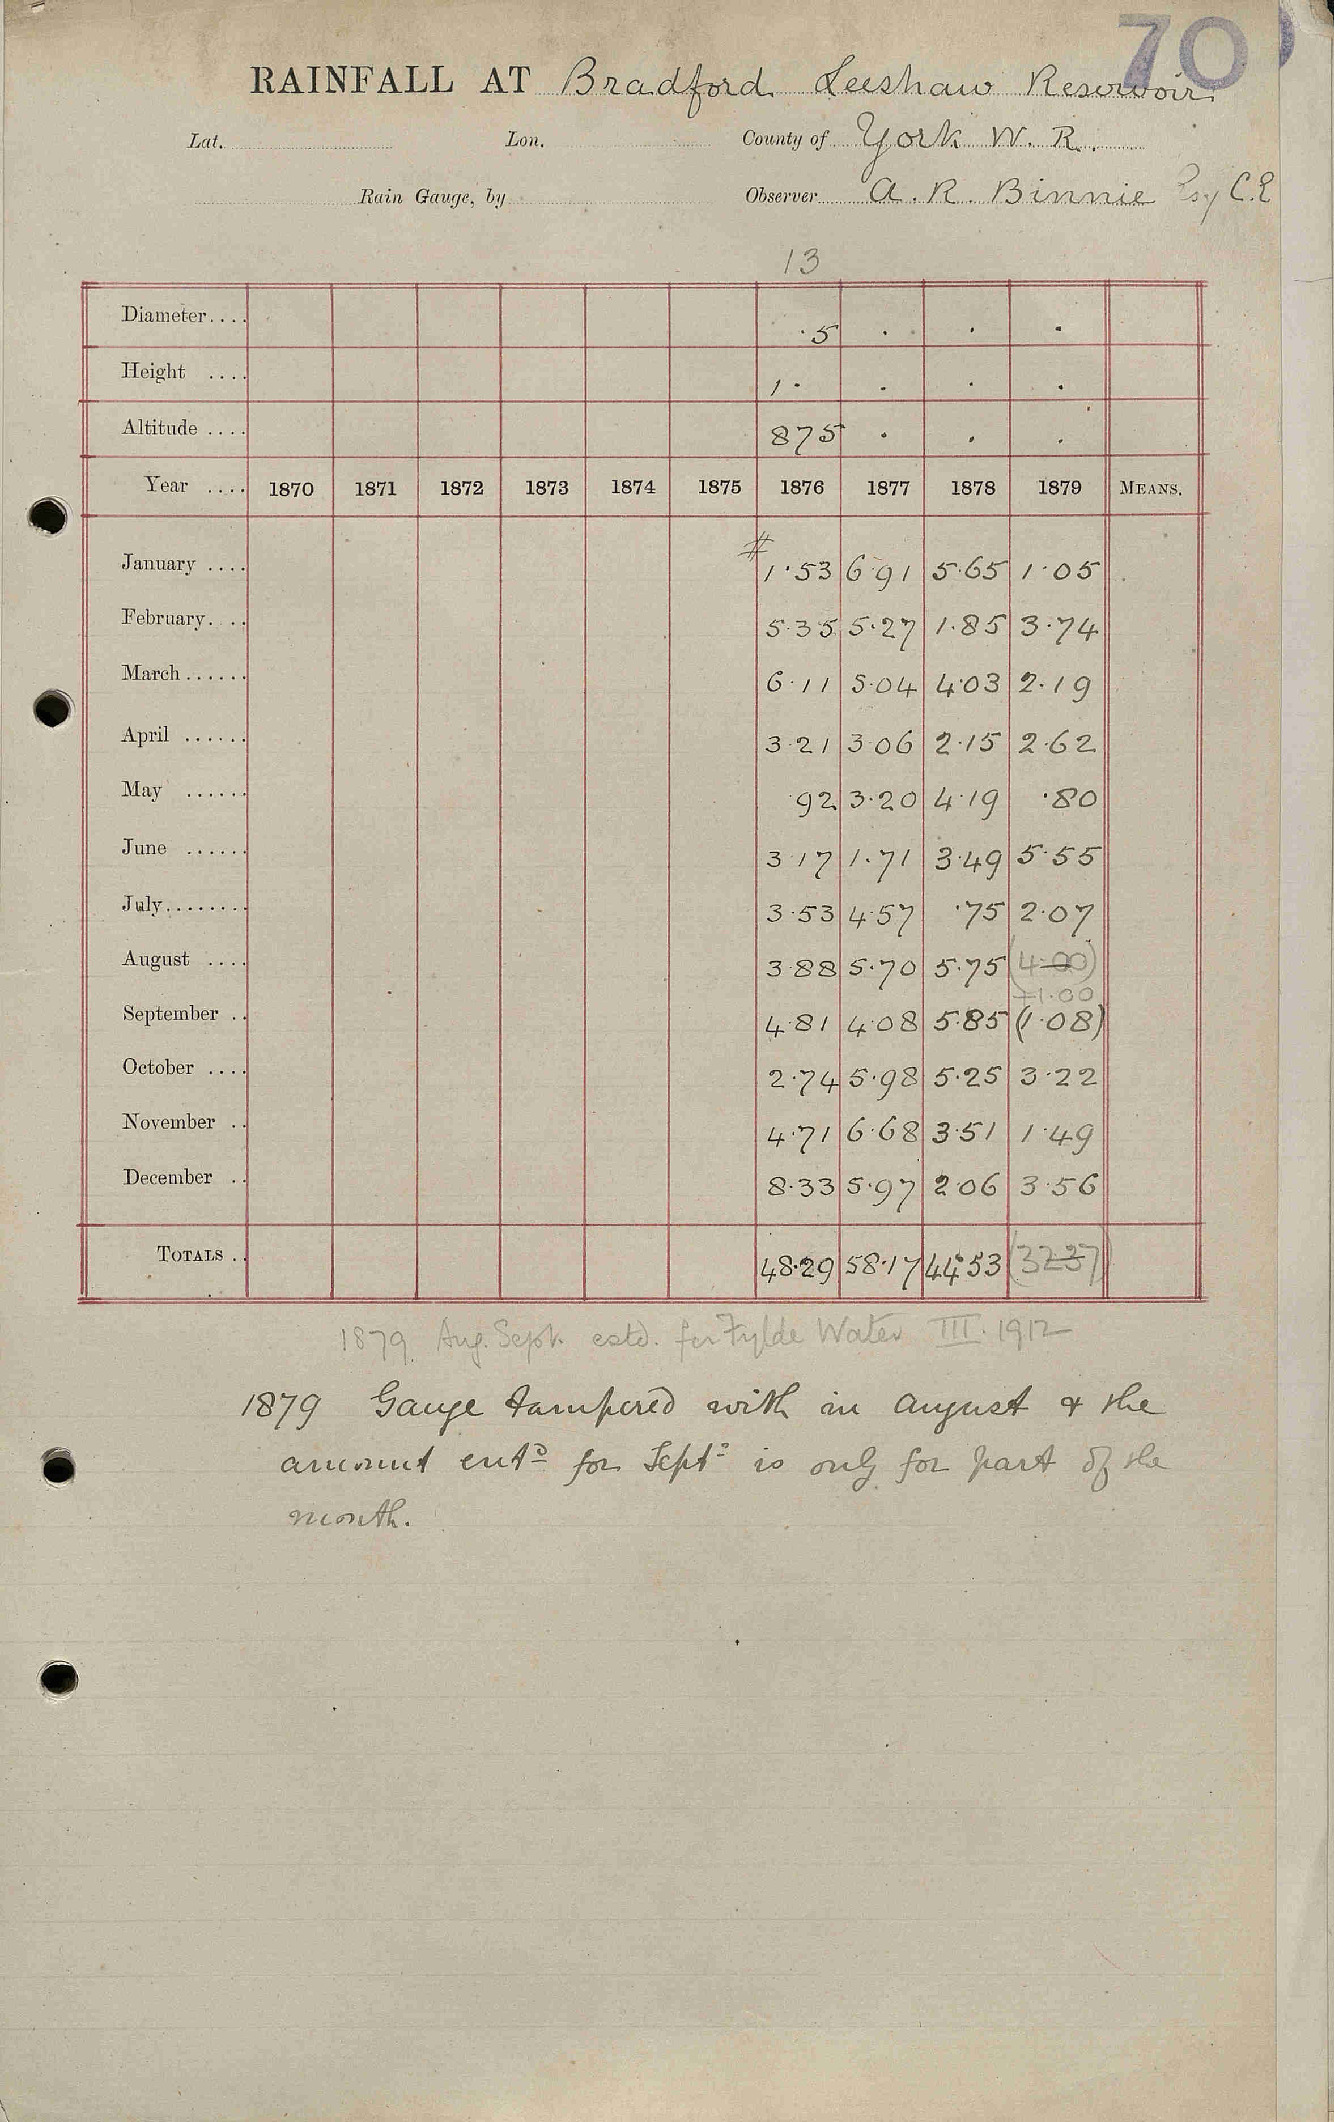 70
RAINFALL AT Bradford Leeshaw Reservoir
Lat. Lon. County of York W. R.
Rain Gauge, by Observer A. R. Binnie Esq C.E
13
Diameter.... ·5 · · ·
Height .... 1· · · ·
Altitude .... 875 · · ·
Year .... 1870 1871 1872 1873 1874 1875 1876 1877 1878 1879 MEANS.
January .... # 1·53 6·91 5·65 1·05
February.... 5·35 5·27 1·85 3·74
March...... 6·11 5·04 4·03 2·19
April ...... 3·21 3·06 2·15 2·62
May ...... ·92 3·20 4·19 ·80
June ...... 3·17 1·71 3·49 5·55
July........ 3·53 4·57 ·75 2·07
August .... 3·88 5·70 5·75 (4·00)
+1·00
September .. 4·81 4·08 5·85 (1·08)
October .... 2·74 5·98 5·25 3·22
November .. 4·71 6·68 3·51 1·49
December .. 8·33 5·97 2·06 3·56
TOTALS .. 48·29 58·17 44·53 (32·37)
1879 Aug. Sept. estd. for Fylde Water III. 1912
1879 Gauge tampered with in August & the
amount entd for Sept. is only for part of the
month.